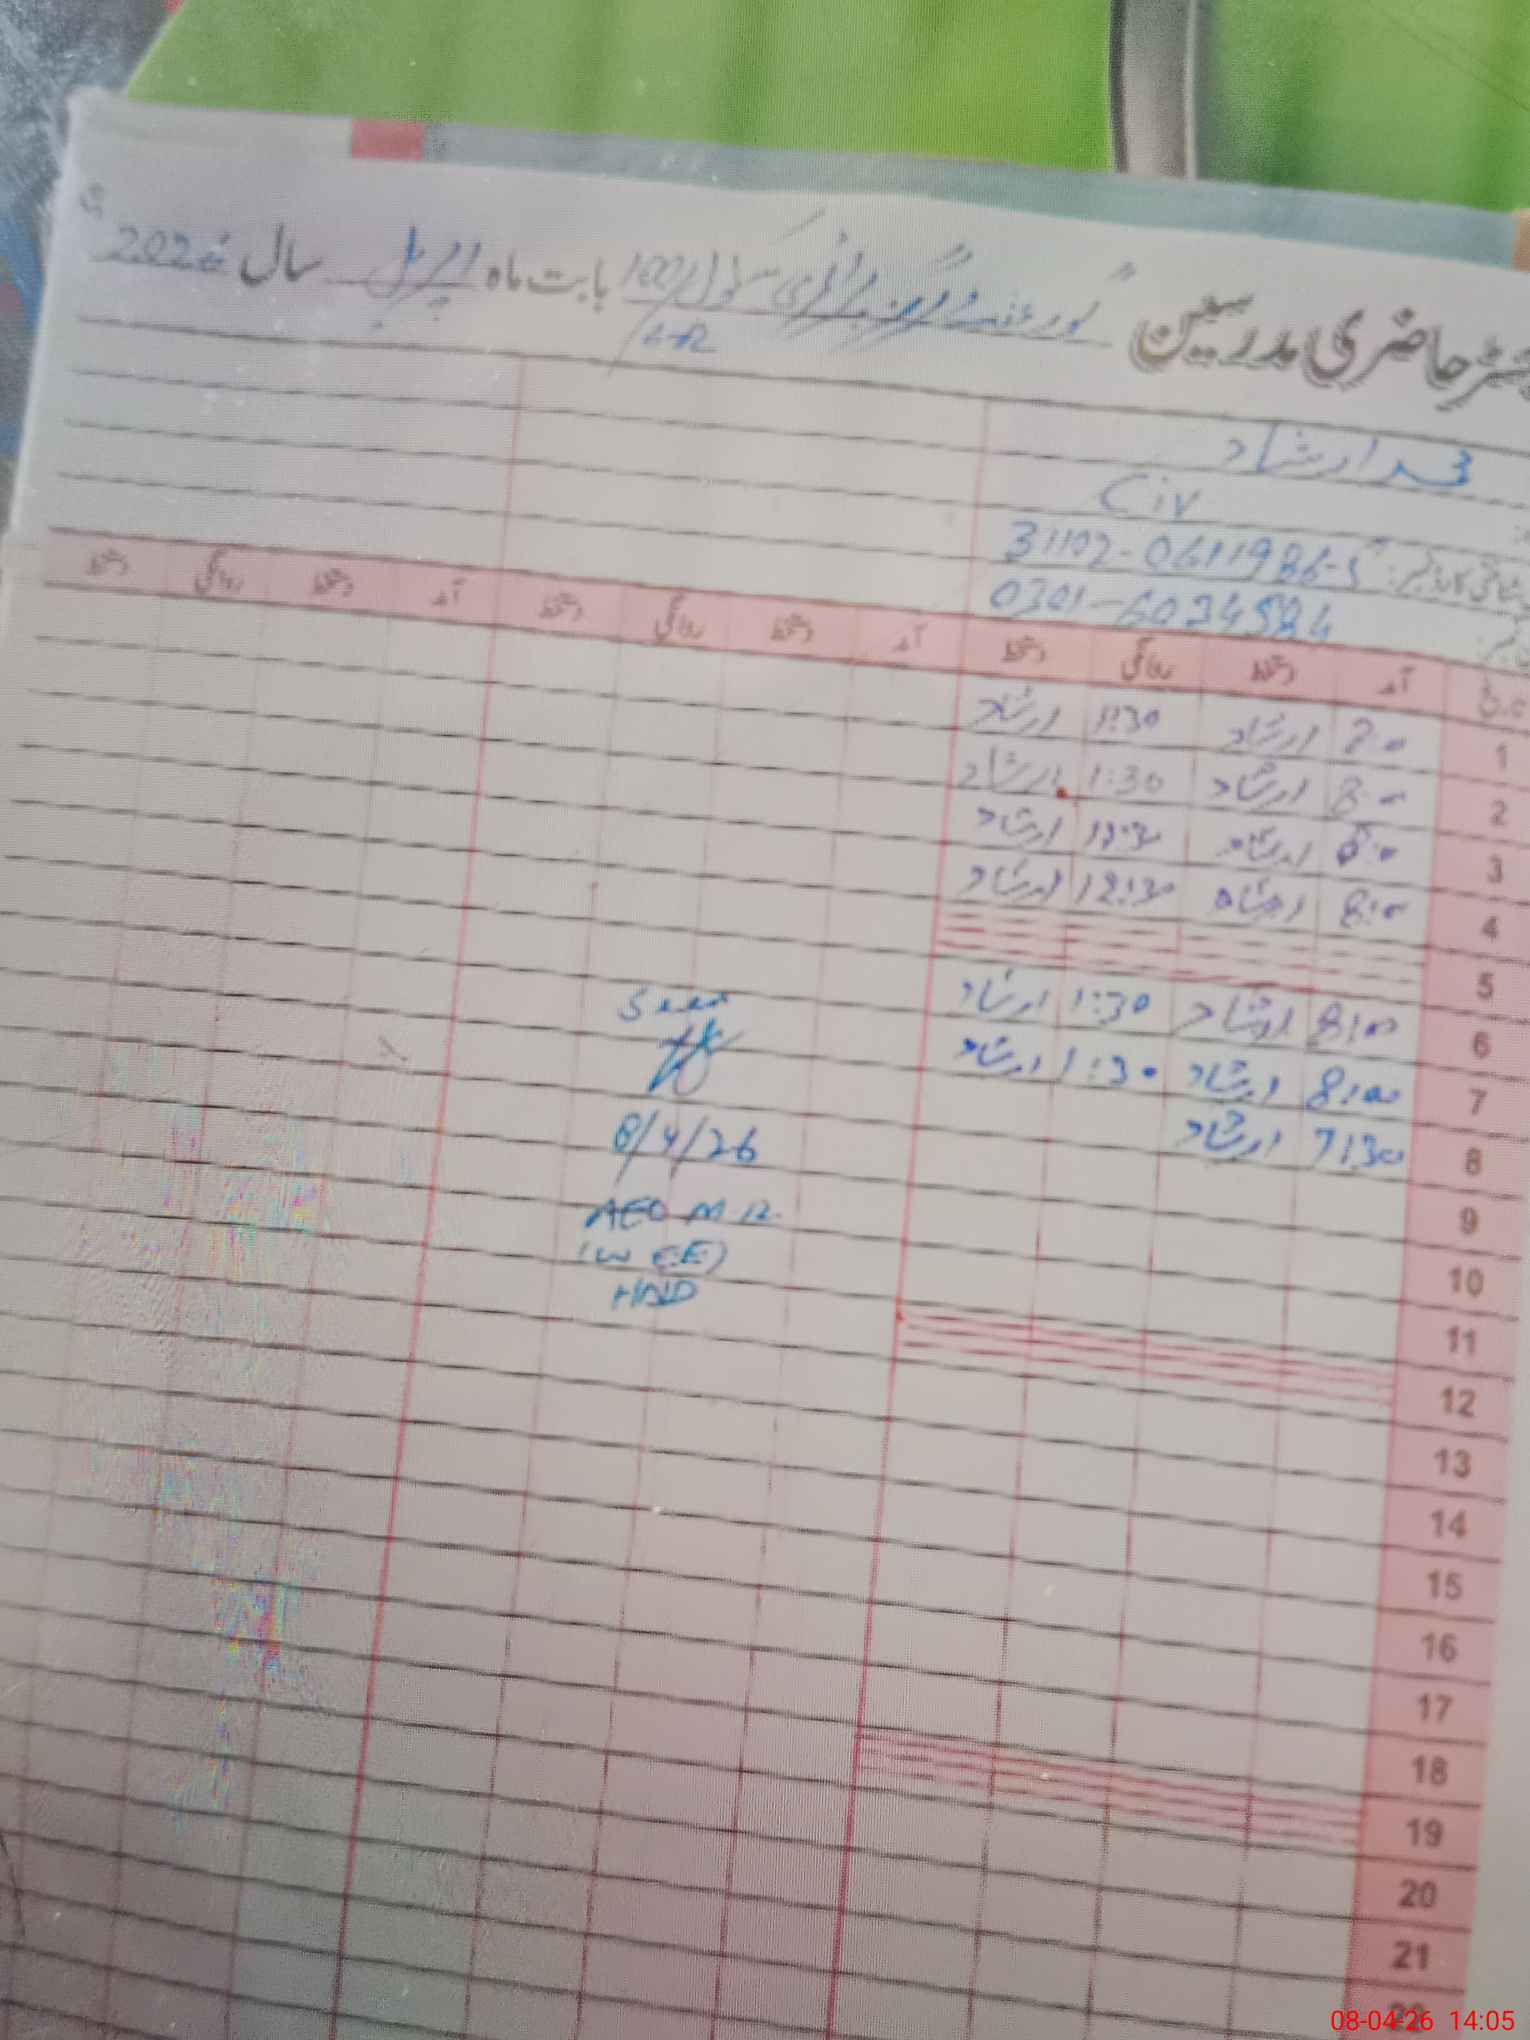 رجسٹر حاضری مدرسین گورنمنٹ گرلز پرائمری سکول 100/ بابت ماہ اپریل سال 2026
محمد ارشاد
Civ
شناختی کارڈ نمبر: 31102-0611986-5
0301-6034584
آمد دستخط روانگی دستخط آمد دستخط روانگی دستخط آمد دستخط روانگی دستخط
1 8:00 ارشاد 1:30 ارشاد
2 8:00 ارشاد 1:30 ارشاد
3 8:00 ارشاد 12:30 ارشاد
4 8:00 ارشاد 12:30 ارشاد
5
6 8:00 ارشاد 1:30 ارشاد
7 8:00 ارشاد 1:30 ارشاد
8 7:30 ارشاد
9
10
11
12
13
14
15
16
17
18
19
20
21
22
Seen
8/4/26
AEO M.R.
(W EE)
HND
08-04-26 14:05